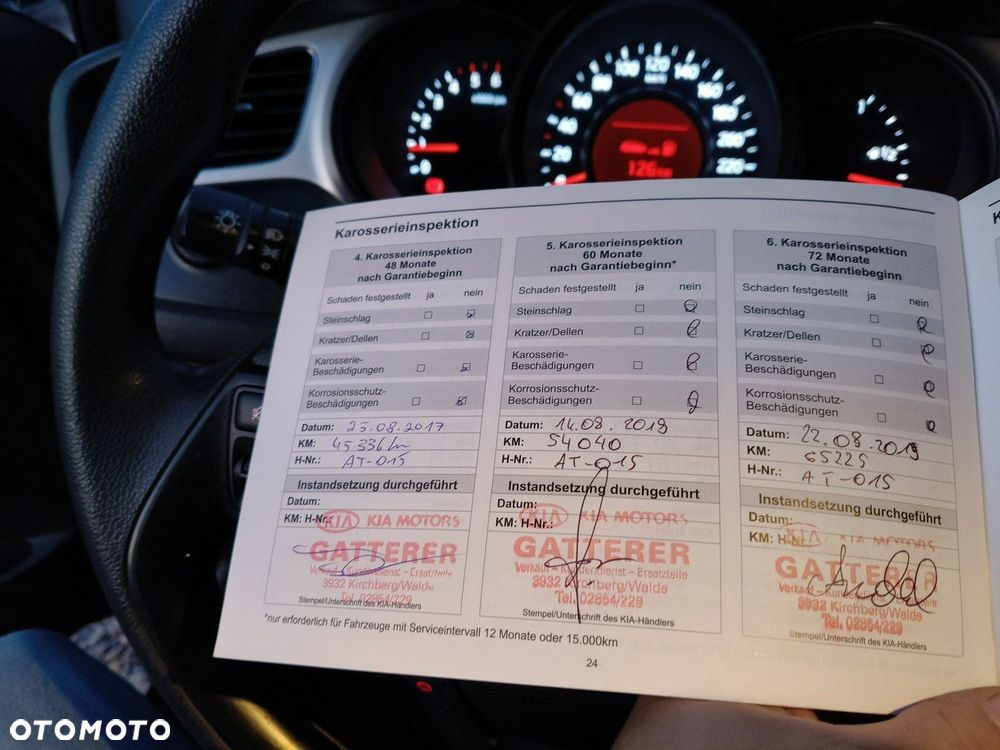 1
2
3
4
5
6
20
40
60
80
100
120
140
160
180
200
220
km/h
126
1
1/2
Karosserieinspektion
4. Karosserieinspektion
48 Monate
nach Garantiebeginn
Schaden festgestellt ja nein
Steinschlag
Kratzer/Dellen
Karosserie-
Beschädigungen
Korrosionsschutz-
Beschädigungen
Datum: 25.08.2017
KM: 45336 km
H-Nr.: AT-015
Instandsetzung durchgeführt
Datum:
KM: H-Nr.:
KIA KIA MOTORS
GATTERER
Verkauf - Kundendienst - Ersatzteile
3932 Kirchberg/Walde
Tel. 02854/229
Stempel/Unterschrift des KIA-Händlers
5. Karosserieinspektion
60 Monate
nach Garantiebeginn*
Schaden festgestellt ja nein
Steinschlag
Kratzer/Dellen
Karosserie-
Beschädigungen
Korrosionsschutz-
Beschädigungen
Datum: 14.08.2018
KM: 54040
H-Nr.: AT-015
Instandsetzung durchgeführt
Datum:
KM: H-Nr.:
KIA KIA MOTORS
GATTERER
Verkauf - Kundendienst - Ersatzteile
3932 Kirchberg/Walde
Tel. 02854/229
Stempel/Unterschrift des KIA-Händlers
6. Karosserieinspektion
72 Monate
nach Garantiebeginn
Schaden festgestellt ja nein
Steinschlag
Kratzer/Dellen
Karosserie-
Beschädigungen
Korrosionsschutz-
Beschädigungen
Datum: 22.08.2019
KM: 65225
H-Nr.: AT-015
Instandsetzung durchgeführt
Datum:
KM: H-Nr.:
KIA KIA MOTORS
GATTERER
3932 Kirchberg/Walde
Tel. 02854/229
Stempel/Unterschrift des KIA-Händlers
*nur erforderlich für Fahrzeuge mit Serviceintervall 12 Monate oder 15.000km
24
OTOMOTO